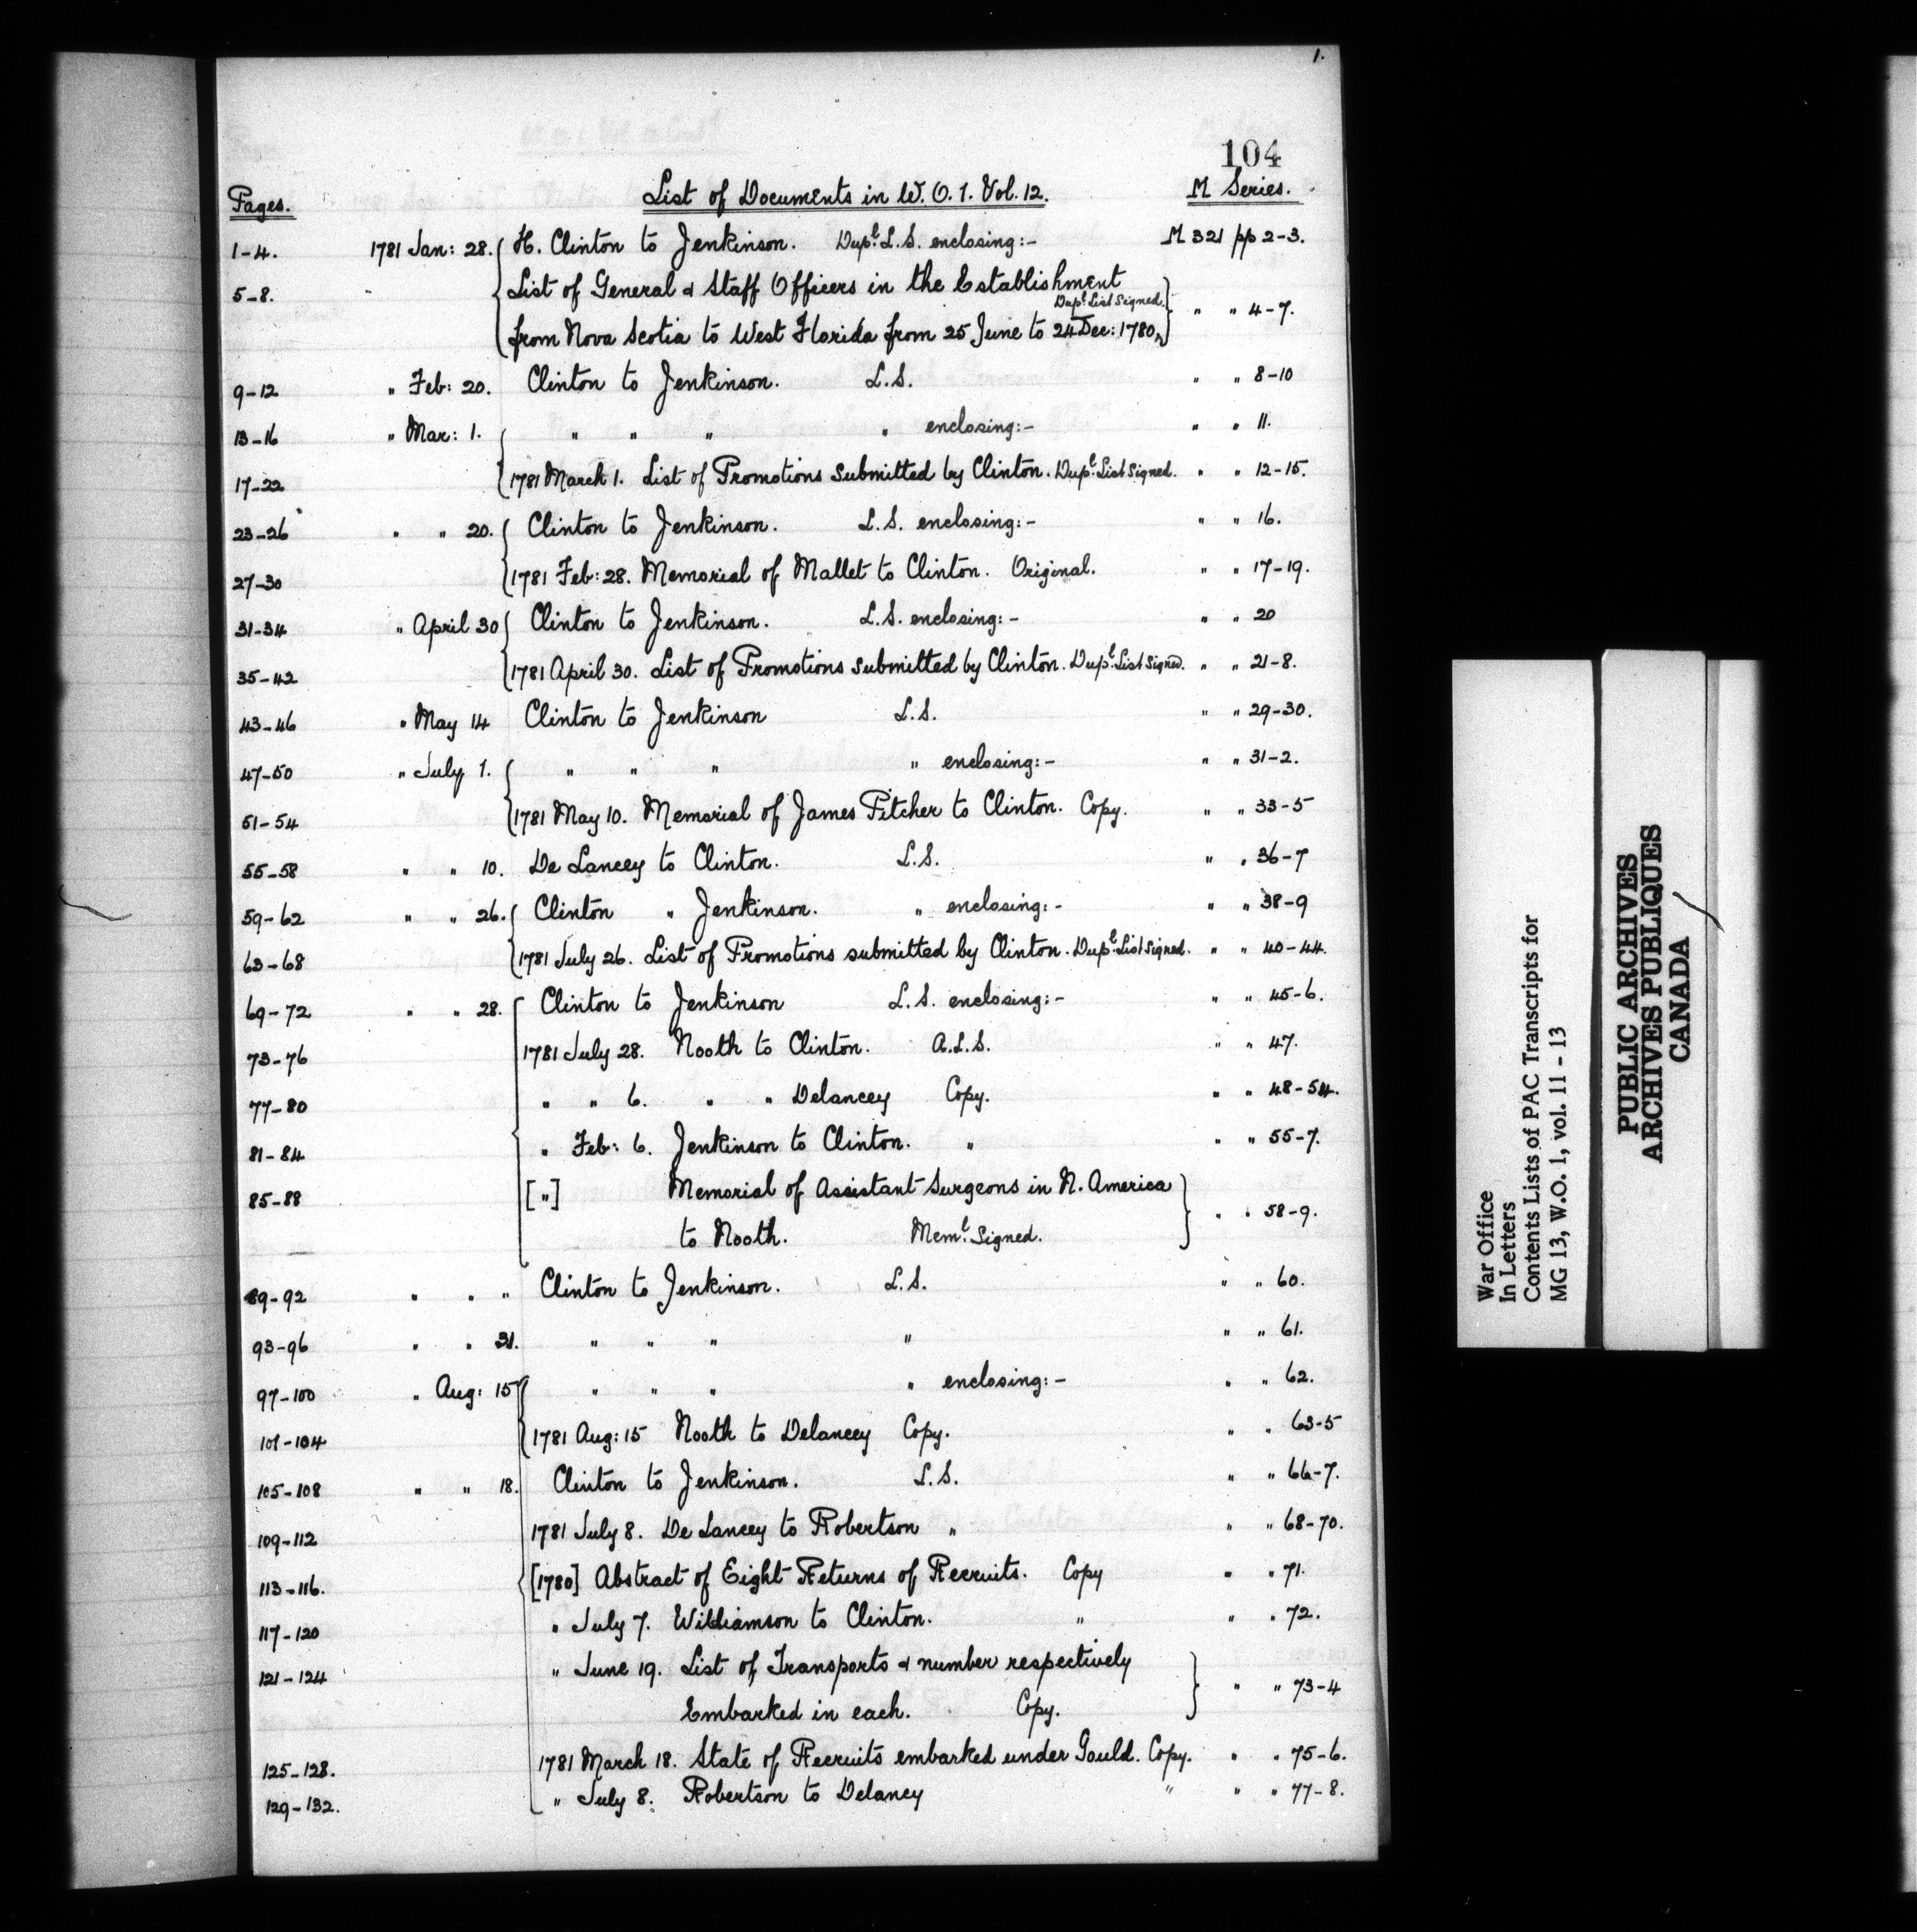 1.
104
Pages. List of Documents in W. O. 1. Vol. 12. M Series.
1-4. 1781 Jan: 28. H. Clinton to Jenkinson. Dupl. L.S. enclosing:- M 321 pp 2-3.
5-8. List of General & Staff Officers in the Establishment
Dupl. List Signed.
from Nova Scotia to West Florida from 25 June to 24 Dec: 1780, " " 4-7.
9-12 " Feb: 20. Clinton to Jenkinson. L.S. " " 8-10
13-16 " Mar: 1. " " " " enclosing:- " " 11.
17-22 1781 March 1. List of Promotions submitted by Clinton. Dupl. List Signed. " " 12-15.
23-26 " " 20. Clinton to Jenkinson. L.S. enclosing:- " " 16.
27-30 1781 Feb: 28. Memorial of Mallet to Clinton. Original. " " 17-19.
31-34 " April 30 Clinton to Jenkinson. L.S. enclosing:- " " 20
35-42 1781 April 30. List of Promotions submitted by Clinton. Dupl. List Signed. " " 21-8.
43-46 " May 14 Clinton to Jenkinson L.S. " " 29-30.
47-50 " July 1. " " " " enclosing:- " " 31-2.
51-54 1781 May 10. Memorial of James Pitcher to Clinton. Copy. " " 33-5
55-58 " " 10. De Lancey to Clinton. L.S. " " 36-7
59-62 " " 26. Clinton " Jenkinson. " enclosing:- " " 38-9
63-68 1781 July 26. List of Promotions submitted by Clinton. Dupl. List Signed. " " 40-44.
69-72 " " 28. Clinton to Jenkinson L.S. enclosing:- " " 45-6.
73-76 1781 July 28. Nooth to Clinton. A.L.S. " " 47.
77-80 " " 6. " " Delancey Copy. " " 48-54.
81-84 " Feb: 6. Jenkinson to Clinton. " " " 55-7.
85-88 ["] Memorial of Assistant Surgeons in N. America
to Nooth. Meml. Signed. " " 58-9.
89-92 " " " Clinton to Jenkinson. L.S. " " 60.
93-96 " " 31. " " " " " " 61.
97-100 " Aug: 15 " " " " enclosing:- " " 62.
101-104 1781 Aug: 15 Nooth to Delancey Copy. " " 63-5
105-108 " " 18. Clinton to Jenkinson. L.S. " " 66-7.
109-112 1781 July 8. De Lancey to Robertson " " " 68-70.
113-116. [1780] Abstract of Eight Returns of Recruits. Copy " " 71.
117-120 " July 7. Williamson to Clinton. " " " 72.
121-124 " June 19. List of Transports & number respectively
Embarked in each. Copy. " " 73-4
125-128. 1781 March 18. State of Recruits embarked under Gould. Copy. " " 75-6.
129-132. " July 8. Robertson to Delancy " " " 77-8.
War Office
In Letters
Contents Lists of PAC Transcripts for
MG 13, W.O. 1, vol. 11 - 13
PUBLIC ARCHIVES
ARCHIVES PUBLIQUES
CANADA